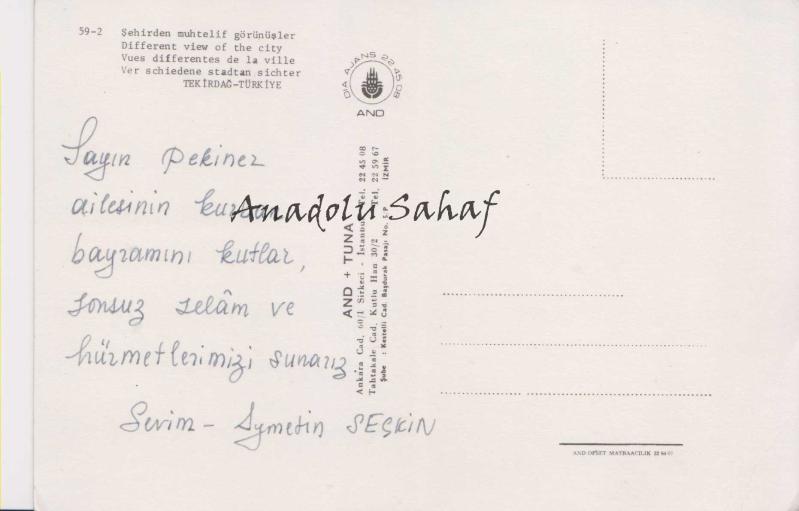 59-2 Şehirden muhtelif görünüşler
Different view of the city
Vues differentes de la ville
Ver schiedene stadtan sichter
TEKİRDAĞ-TÜRKİYE
DİA AJANS 22 45 08
AND
Sayın Pekiner
ailesinin
bayramını kutlar,
sonsuz selâm ve
hürmetlerimizi sunarız
Sevim - SEÇKİN
Anadolu Sahaf
AND + TUNA
Ankara Cad. 60/1 Sirkeci - İstanbul Tel. 22 45 08
Tahtakale Cad. Kutlu Han 30/2 Tel. 22 59 67
Şube : Kestelli Cad. Başdurak Pasajı No. İZMİR
AND OFSET MATBAACILIK